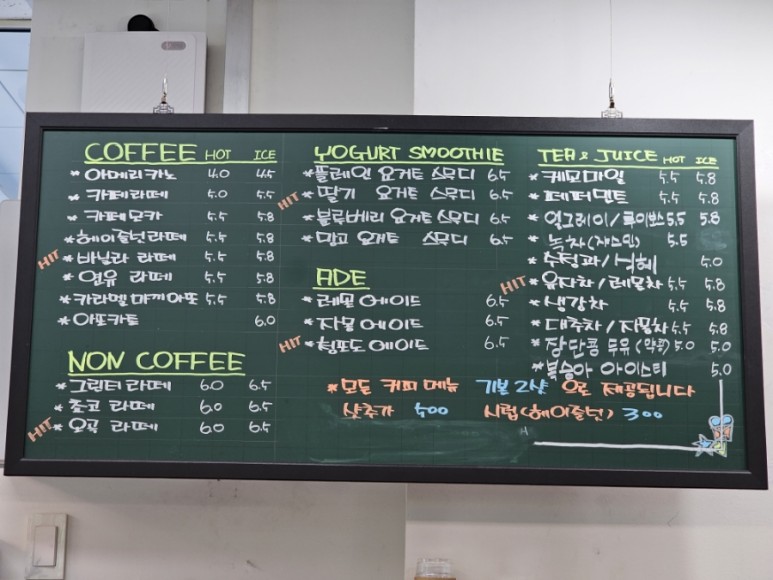 COFFEE HOT ICE
* 아메리카노 4.0 4.5
* 카페라떼 5.0 5.5
* 카페모카 5.5 5.8
* 헤이즐넛라떼 5.5 5.8
HIT * 바닐라 라떼 5.5 5.8
* 연유 라떼 5.5 5.8
* 카라멜마끼아또 5.5 5.8
* 아포카토 6.0
NON COFFEE
* 그린티 라떼 6.0 6.5
* 초코 라떼 6.0 6.5
HIT * 오곡 라떼 6.0 6.5
YOGURT SMOOTHIE
* 플레인 요거트 스무디 6.5
HIT * 딸기 요거트 스무디 6.5
* 블루베리 요거트 스무디 6.5
* 망고 요거트 스무디 6.5
ADE
* 레몬에이드 6.5
* 자몽에이드 6.5
HIT * 청포도에이드 6.5
TEA & JUICE HOT ICE
* 케모마일 5.5 5.8
* 페퍼민트 5.5 5.8
* 얼그레이/루이보스 5.5 5.8
* 녹차(재스민) 5.5
* 수정과/식혜 5.0
HIT * 유자차/레몬차 5.5 5.8
* 생강차 5.5 5.8
* 대추차/자몽차 5.5 5.8
* 장단콩 두유 5.0 5.0
* 복숭아 아이스티 5.0
* 모든 커피 메뉴 기본 2샷 으로 제공됩니다
샷추가 500 시럽(헤이즐넛) 300